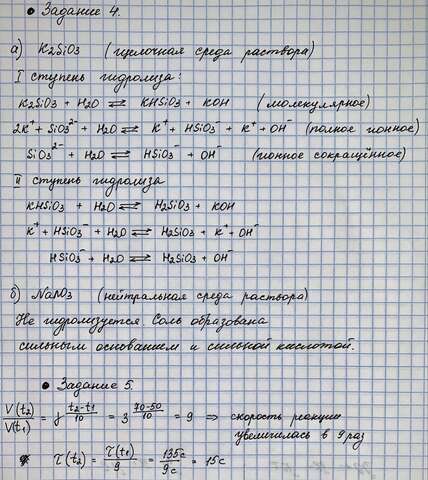 • Задание 4.
а) K₂SiO₃ (щелочная среда раствора)
I ступень гидролиза:
K₂SiO₃ + H₂O ⇌ KHSiO₃ + KOH (молекулярное)
2K⁺ + SiO₃²⁻ + H₂O ⇌ K⁺ + HSiO₃⁻ + K⁺ + OH⁻ (полное ионное)
SiO₃²⁻ + H₂O ⇌ HSiO₃⁻ + OH⁻ (ионное сокращённое)
II ступень гидролиза
KHSiO₃ + H₂O ⇌ H₂SiO₃ + KOH
K⁺ + HSiO₃⁻ + H₂O ⇌ H₂SiO₃ + K⁺ + OH⁻
HSiO₃⁻ + H₂O ⇌ H₂SiO₃ + OH⁻
б) NaPO₃ (нейтральная среда раствора)
Не гидролизуется. Соль образована
сильным основанием и сильной кислотой.
• Задание 5.
V(t₂)/V(t₁) = γ^((t₂-t₁)/10) = 3^((70-50)/10) = 9 ⇒ скорость реакции
увеличилась в 9 раз
τ(t₂) = τ(t₁)/9 = 135с/9с = 15с